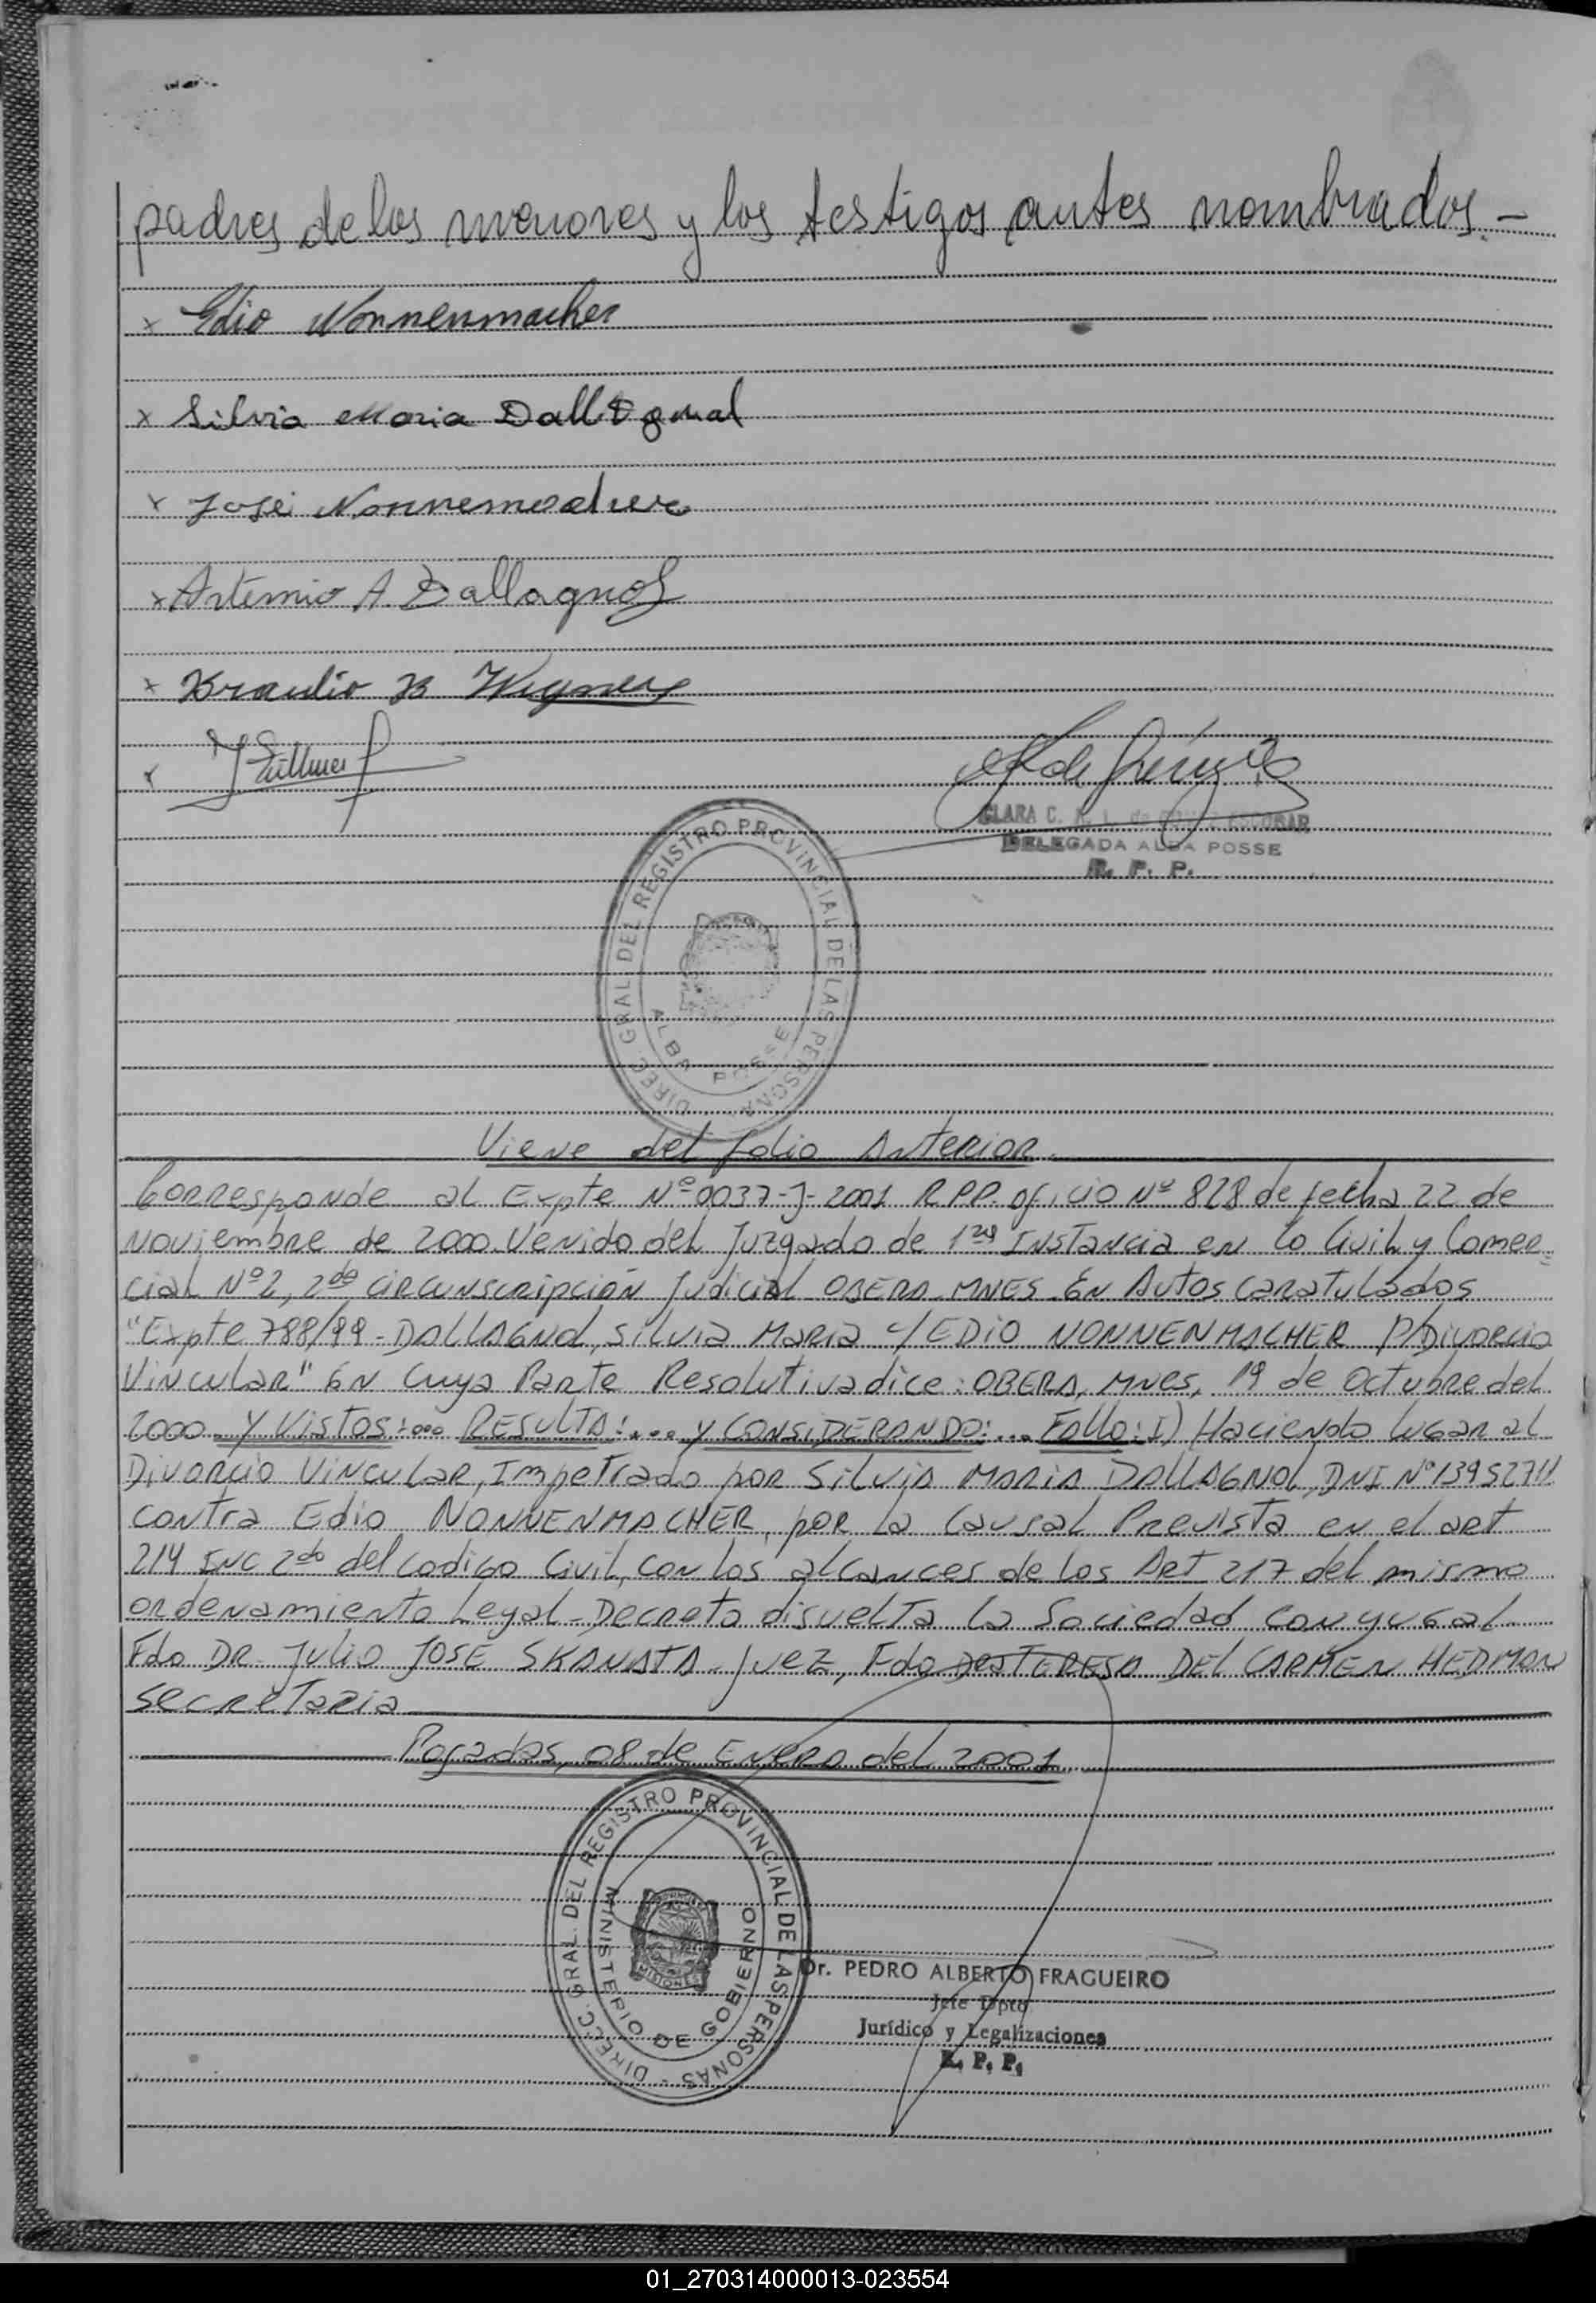 padres de los menores y los testigos antes nombrados.-
x Edio Nonnenmacher
x Silvia Maria Dallagnol
x José Nonnemacher
x Artemio A. Dallagnol
x Braulio B
x
CLARA C. ESCOBAR
DELEGADA ALBA POSSE
R. P. P.
DIREC. GRAL. DEL REGISTRO PROVINCIAL DE LAS PERSONAS
ALBA POSSE
Viene del folio Anterior.
Corresponde al Expte Nº 0037-J-2001 R.P.P. oficio Nº 828 de fecha 22 de
Noviembre de 2000. Venido del Juzgado de 1ra Instancia en lo Civil y Comer=
cial Nº 2, 2da circunscripción Judicial OBERA. MNES. En Autos caratulados
"Expte 788/99 - DALLAGNOL, Silvia Maria c/ EDIO NONNENMACHER P/Divorcio
Vincular" En cuya Parte Resolutiva dice: OBERA, Mnes, 19 de Octubre del
2000. Y Vistos:... RESULTA:... y CONSIDERANDO:... Fallo: I) Haciendo lugar al
Divorcio Vincular, Impetrado por Silvia Maria DALLAGNOL, DNI Nº 13952711
contra Edio NONNENMACHER, por la causal Prevista en el art
214 INC 2do del codigo Civil, con los alcances de los Art 217 del mismo
ordenamiento Legal - Decreto disuelta la Sociedad conyugal.
Fdo DR. Julio JOSE SKANATA - Juez, Fdo TERESA DEL CARMEN HEDMAN
Secretaria
Posadas, 08 de Enero del 2001.
DIRECC. GRAL. DEL REGISTRO PROVINCIAL DE LAS PERSONAS
MINISTERIO DE GOBIERNO
MISIONES
Dr. PEDRO ALBERTO FRAGUEIRO
Jefe Dpto
Jurídico y Legalizaciones
R. P. P.
01_270314000013-023554